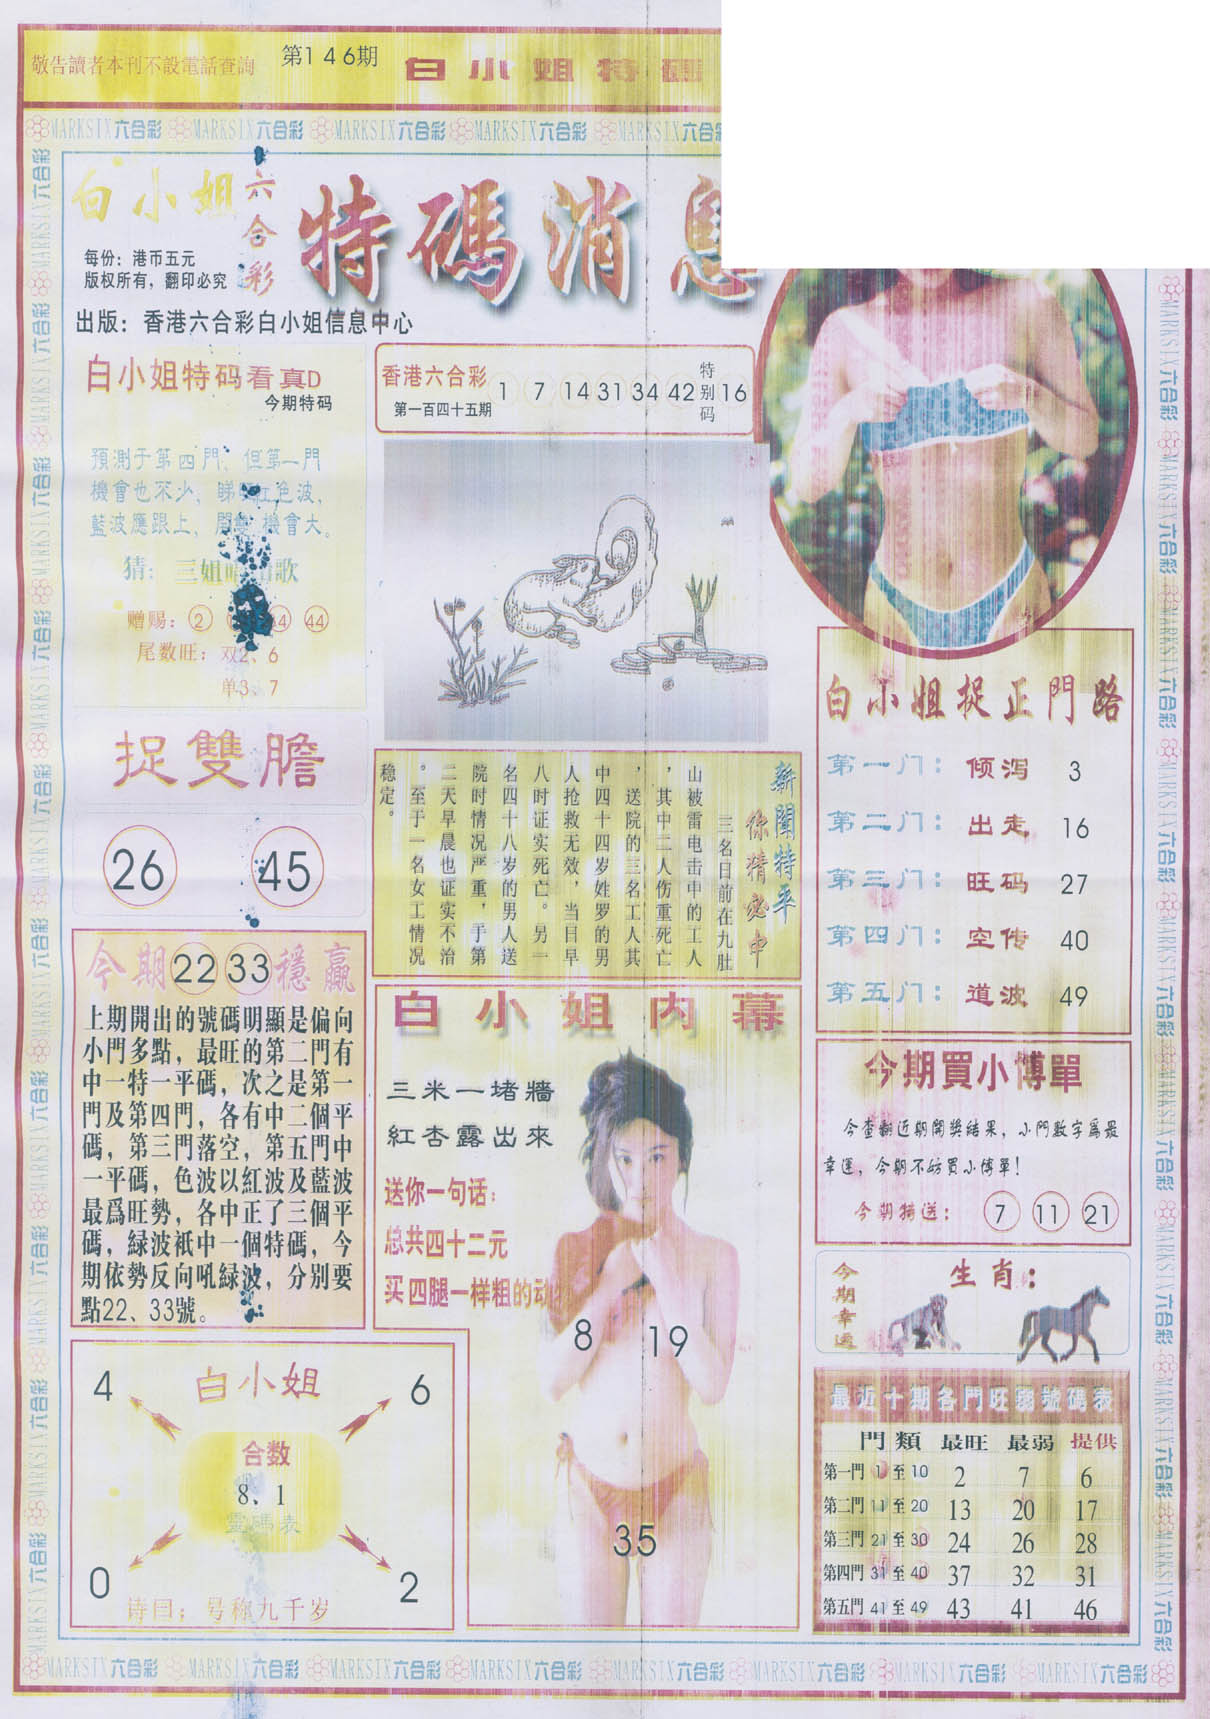 敬告讀者本刊不設電話查詢
第146期
白小姐特碼
MARKSIX六合彩 MARKSIX六合彩 MARKSIX六合彩 MARKSIX六合彩
白小姐
六合彩
特碼消息
每份：港币五元
版权所有，翻印必究
出版：香港六合彩白小姐信息中心
白小姐特码看真D
今期特码
預測于第四門，但第一門
機會也不少，睇
色波，
藍波應跟上，
機會大。
猜：三姐
歌
赠赐：② ㊹
尾数旺：双2、6
单3、7
香港六合彩
第一百四十五期
1 7 14 31 34 42
特别码
16
捉雙膽
26 45
新聞特平
你猜必中
三名日前在九肚
山被雷电击中的工人
，其中二人伤重死亡
，送院的三名工人其
中四十四岁姓罗的男
人抢救无效，当日早
八时证实死亡。另一
名四十八岁的男人送
院时情况严重，于第
二天早晨也证实不治
。至于一名女工情况
稳定。
白小姐捉正門路
第一门：倾泻 3
第二门：出走 16
第三门：旺码 27
第四门：空传 40
第五门：道波 49
今期22 33穩贏
上期開出的號碼明顯是偏向
小門多點，最旺的第二門有
中一特一平碼，次之是第一
門及第四門，各有中二個平
碼，第三門落空，第五門中
一平碼，色波以紅波及藍波
最爲旺勢，各中正了三個平
碼，緑波衹中一個特碼，今
期依勢反向吼緑波，分别要
點22、33號。
白小姐内幕
三米一堵牆
紅杏露出來
送你一句话：
总共四十二元
买四腿一样粗的动物
8 19
35
今期買小博單
今查翻近期開獎結果，小門數字爲最
幸運，今期不妨買小博單！
今期精送： 7 11 21
今期幸运
生肖：
白小姐
4 6
合数
8、1
靈碼表
0 2
诗曰：号称九千岁
最近十期各門旺弱號碼表
門類 最旺 最弱 提供
第一門 1至10 2 7 6
第二門 11至20 13 20 17
第三門 21至30 24 26 28
第四門 31至40 37 32 31
第五門 41至49 43 41 46
MARKSIX六合彩 MARKSIX六合彩 MARKSIX六合彩 MARKSIX六合彩 MARKSIX六合彩 MARKSIX六合彩 MARKSIX六合彩 MARKSIX六合彩